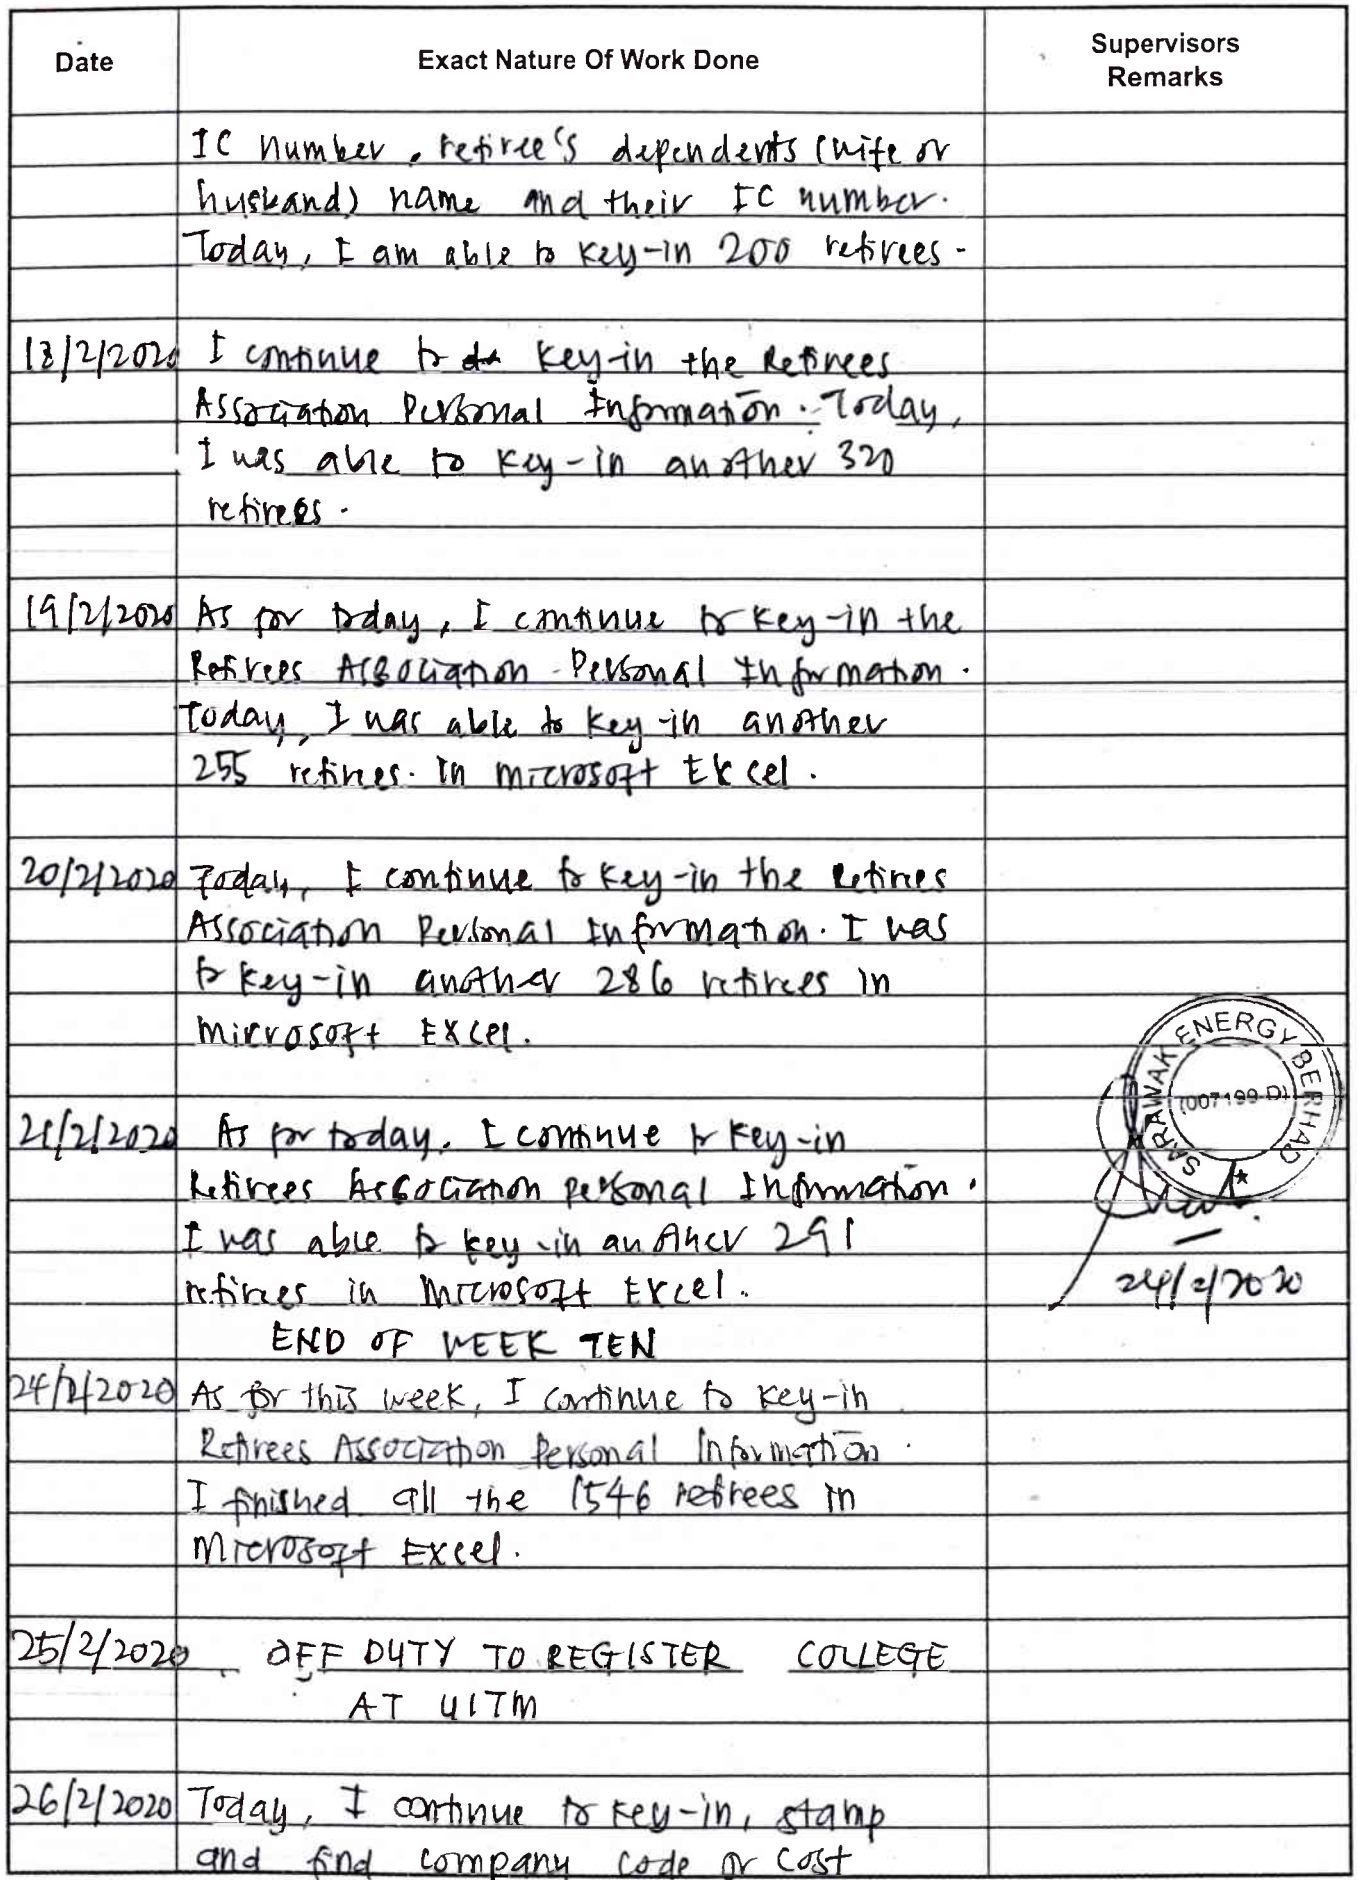 Date Exact Nature Of Work Done Supervisors Remarks
IC number, retiree's dependents (wife or
husband) name and their IC number.
Today, I am able to key-in 200 retirees.
18/2/2020 I continue to key-in the Retirees
Association Personal Information. Today,
I was able to key-in another 320
retirees.
19/2/2020 As for today, I continue to key-in the
Retirees Association Personal Information.
Today, I was able to key-in another
255 retirees. In microsoft Excel.
20/2/2020 Today, I continue to key-in the retirees
Association Personal Information. I was
to key-in another 286 retirees in
Microsoft Excel.
SARAWAK ENERGY BERHAD
(007199-D)
21/2/2020 As for today, I continue to key-in
Retirees Association personal Information.
I was able to key-in another 291
retirees in Microsoft Excel. 24/2/2020
END OF WEEK TEN
24/2/2020 As for this week, I continue to key-in
Retirees Association Personal Information.
I finished all the 1546 retirees in
Microsoft Excel.
25/2/2020 OFF DUTY TO REGISTER COLLEGE
AT UITM
26/2/2020 Today, I continue to key-in, stamp
and find company code or cost